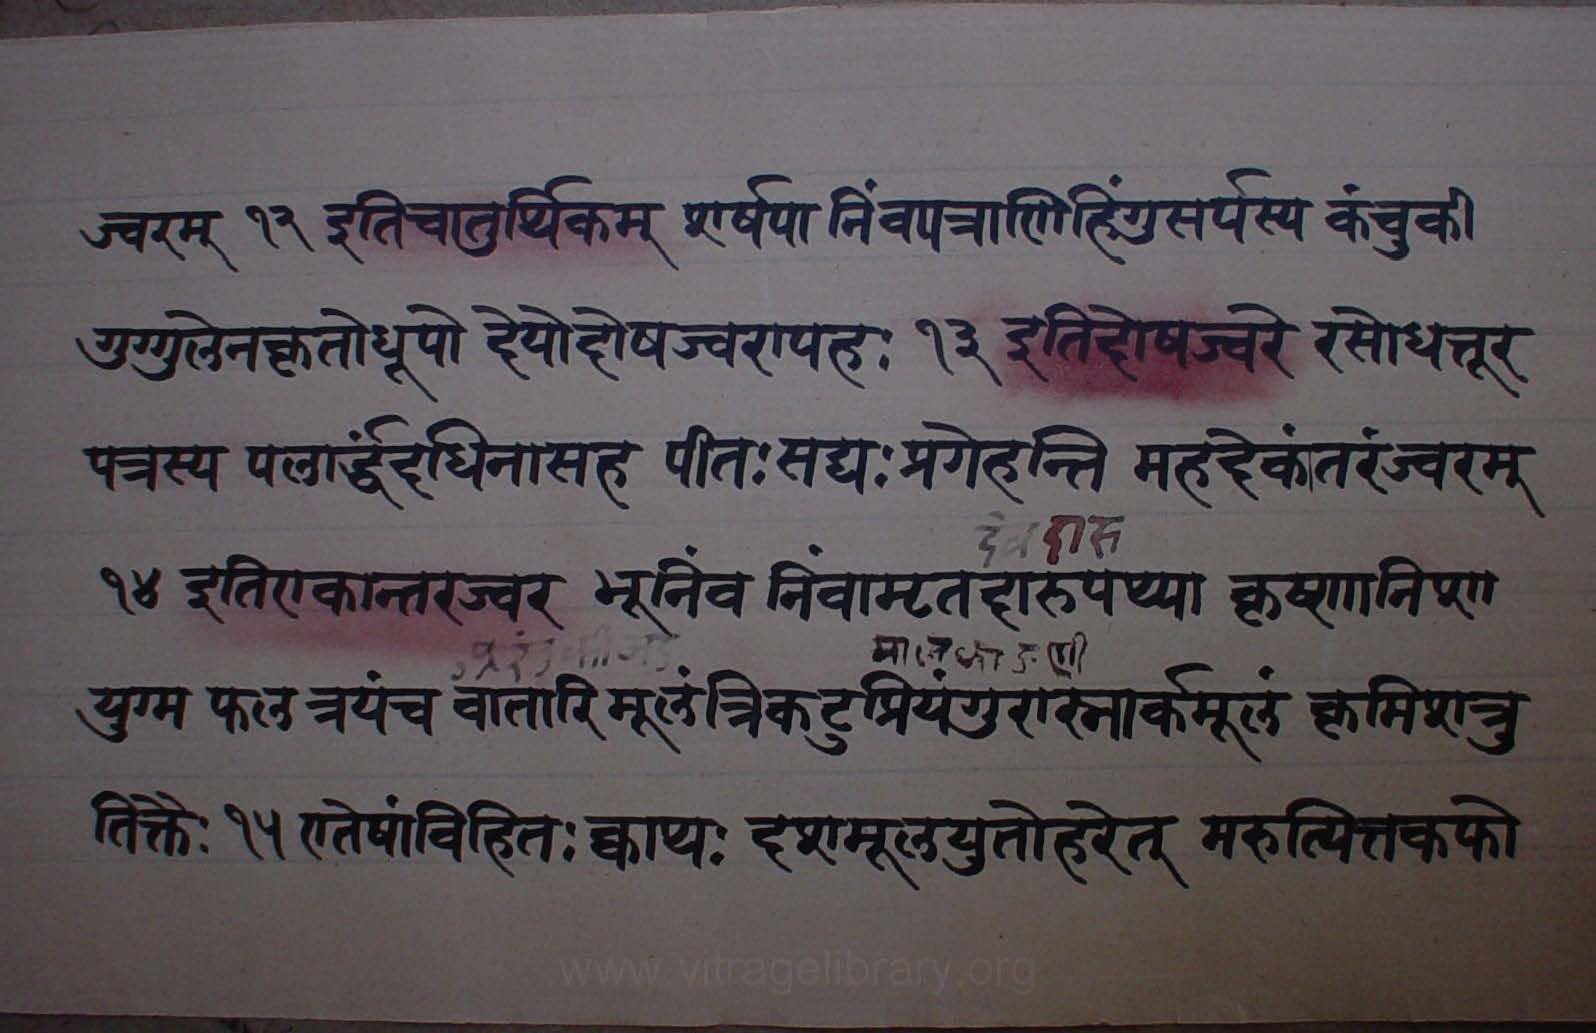 ज्वरम् १२ इतिचातुर्थिकम् शर्षपा निंवपत्राणिहिंगुसर्पस्य कंचुकी
गुग्गुलेनकृतोधूपो देयोदोषज्वरापहः १३ इतिदोषज्वरे रसोधत्तूर
पत्रस्य पलार्द्धंदधिनासह पीतः सद्यः प्रगेहन्ति महदेकांतरंज्वरम्
देवदारु
१४ इतिएकान्तरज्वर भूनिंव निंवामृतदारुपथ्या कृष्णानिशा
एरंडकीजड मालकाङणी
युग्म फल त्रयंच वातारिमूलंत्रिकटुप्रियंगुरास्नार्कमूलं कृमिशत्रु
तिक्तैः १५ एतेषांविहितः क्वाथः दशमूलयुतोहरेत् मरुत्पित्तकफो
www.vitragelibrary.org